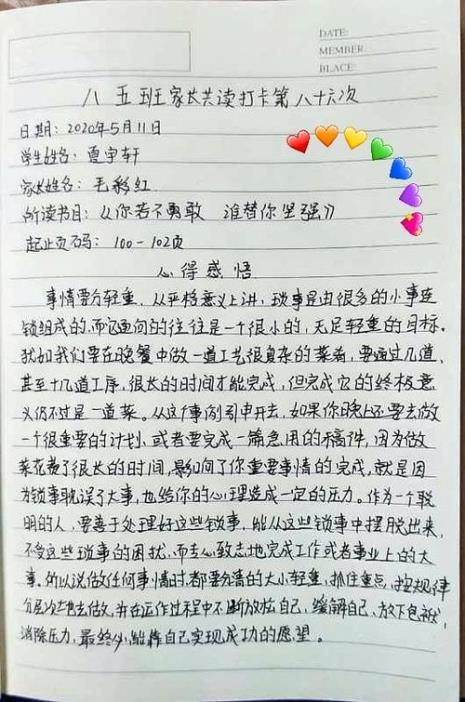 DATE:
MEMBER:
BLACE:
八五班家长共读打卡第八十六次
日期：2020年5月11日
学生姓名：夏宇轩
家长姓名：毛彩红
所读书目：《你若不勇敢 谁替你坚强》
起止页码：100-102页
心得感悟
事情要分轻重，从严格意义上讲，琐事是由很多的小事连
锁组成的，而它通向的往往是一个很小的，无足轻重的目标。
犹如我们要在晚餐中做一道工艺很复杂的菜肴，要通过几道，
甚至十几道工序，很长的时间才能完成，但完成它的终极意
义仍不过是一道菜。从这个事例引申开去，如果你晚上还要去做
一个很重要的计划，或者要完成一篇急用的稿件，因为做
菜花费了很长的时间，影响了你重要事情的完成，就是因
为锁事耽误了大事，也给你的心理造成一定的压力。作为一个聪
明的人，要善于处理好这些锁事，能从这些锁事中摆脱出来，
不受这些琐事的困扰，而专心致志地完成工作或者事业上的大
事，所以说做任何事情时，都要分清的大小轻重，抓住重点，按规律
分层次去做，并在运作过程中不断放松自己，缓解自己，放下包袱，
消除压力，最终能靠自己实现成功的愿望。